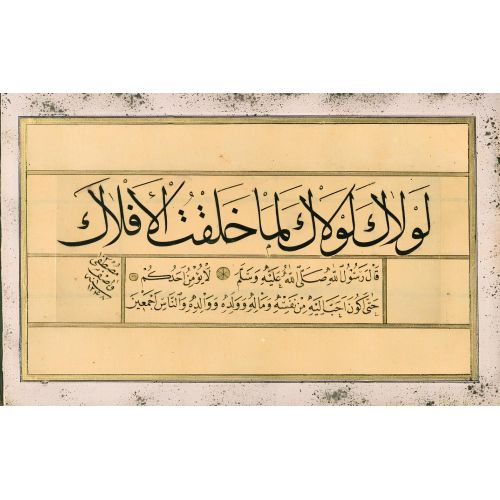 لَوْلَاكَ لَوْلَاكَ لَمَا خَلَقْتُ الْأَفْلَاكَ
قَالَ رَسُولُ اللهِ صَلَّى اللهُ عَلَيْهِ وَسَلَّمَ لَا يُؤْمِنُ اَحَدُكُمْ
حَتَّى اَكُونَ اَحَبَّ اِلَيْهِ مِنْ نَفْسِهِ وَمَالِهِ وَوَلَدِهِ وَوَالِدِهِ وَالنَّاسِ اَجْمَعِينَ